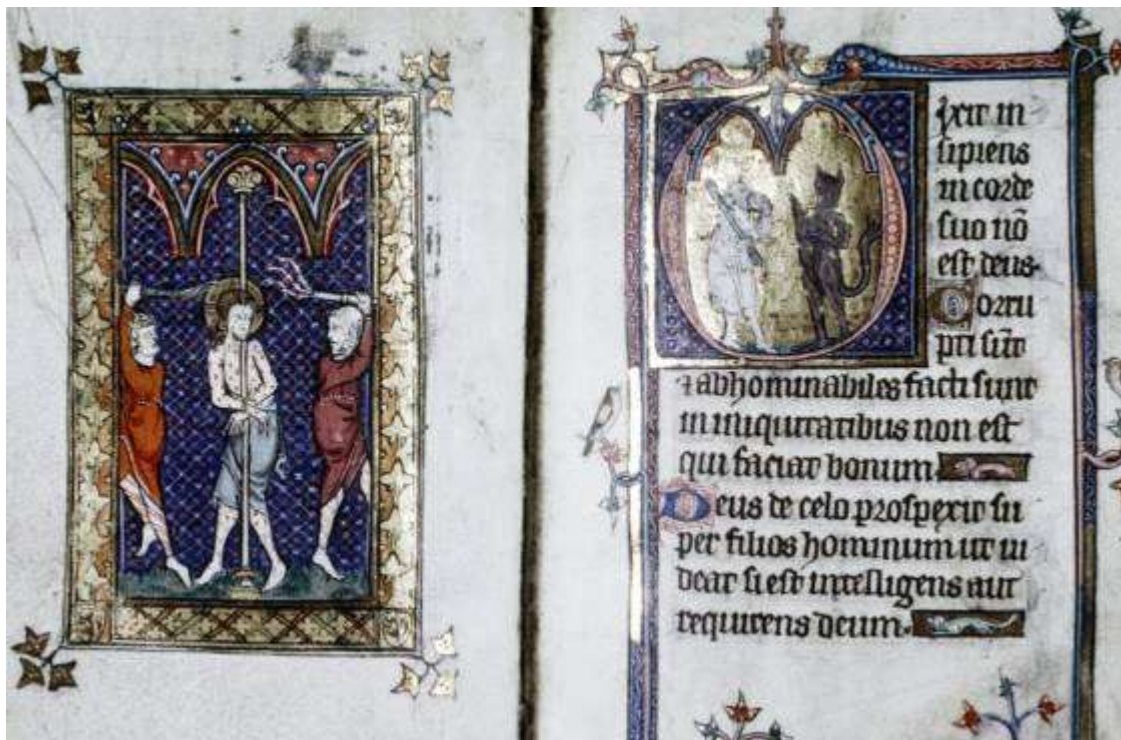 D
ixit in
sipiens
in corde
suo nō
est deus.
Corru
pti sūt
⁊ abhominabiles facti sunt
in iniquitatibus non est
qui faciat bonum.
Deus de celo prospexit su
per filios hominum ut ui
deat si est intelligens aut
requirens deum.